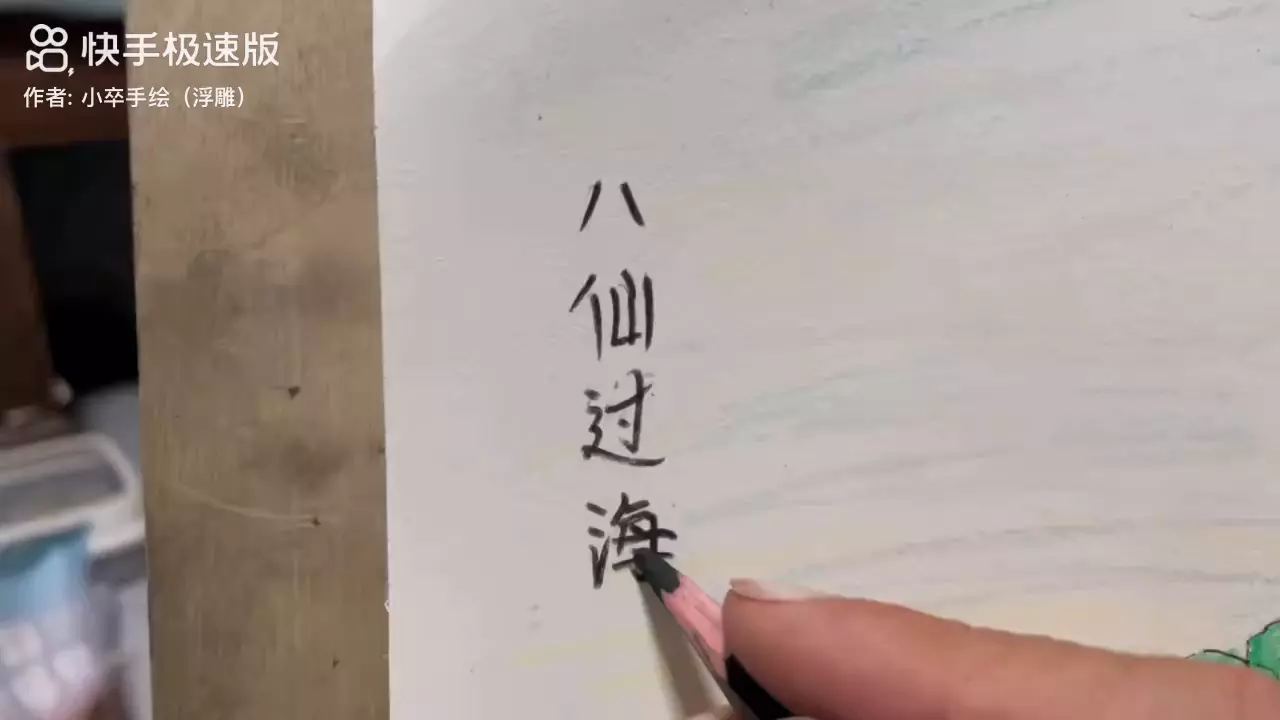 快手极速版
作者: 小卒手绘（浮雕）
八仙过海